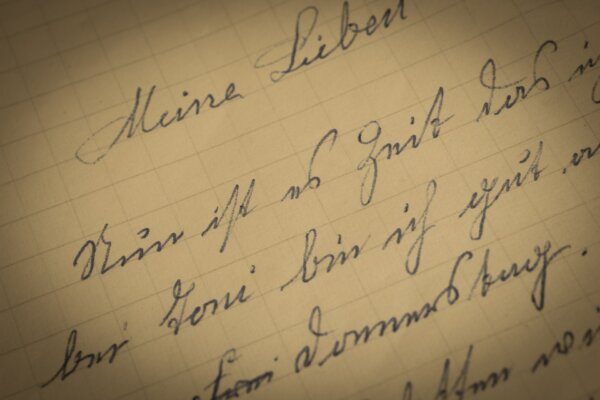 Meine Lieben
Nun ist es Zeit das ich
bei Toni bin ich gut
Donnerstag.